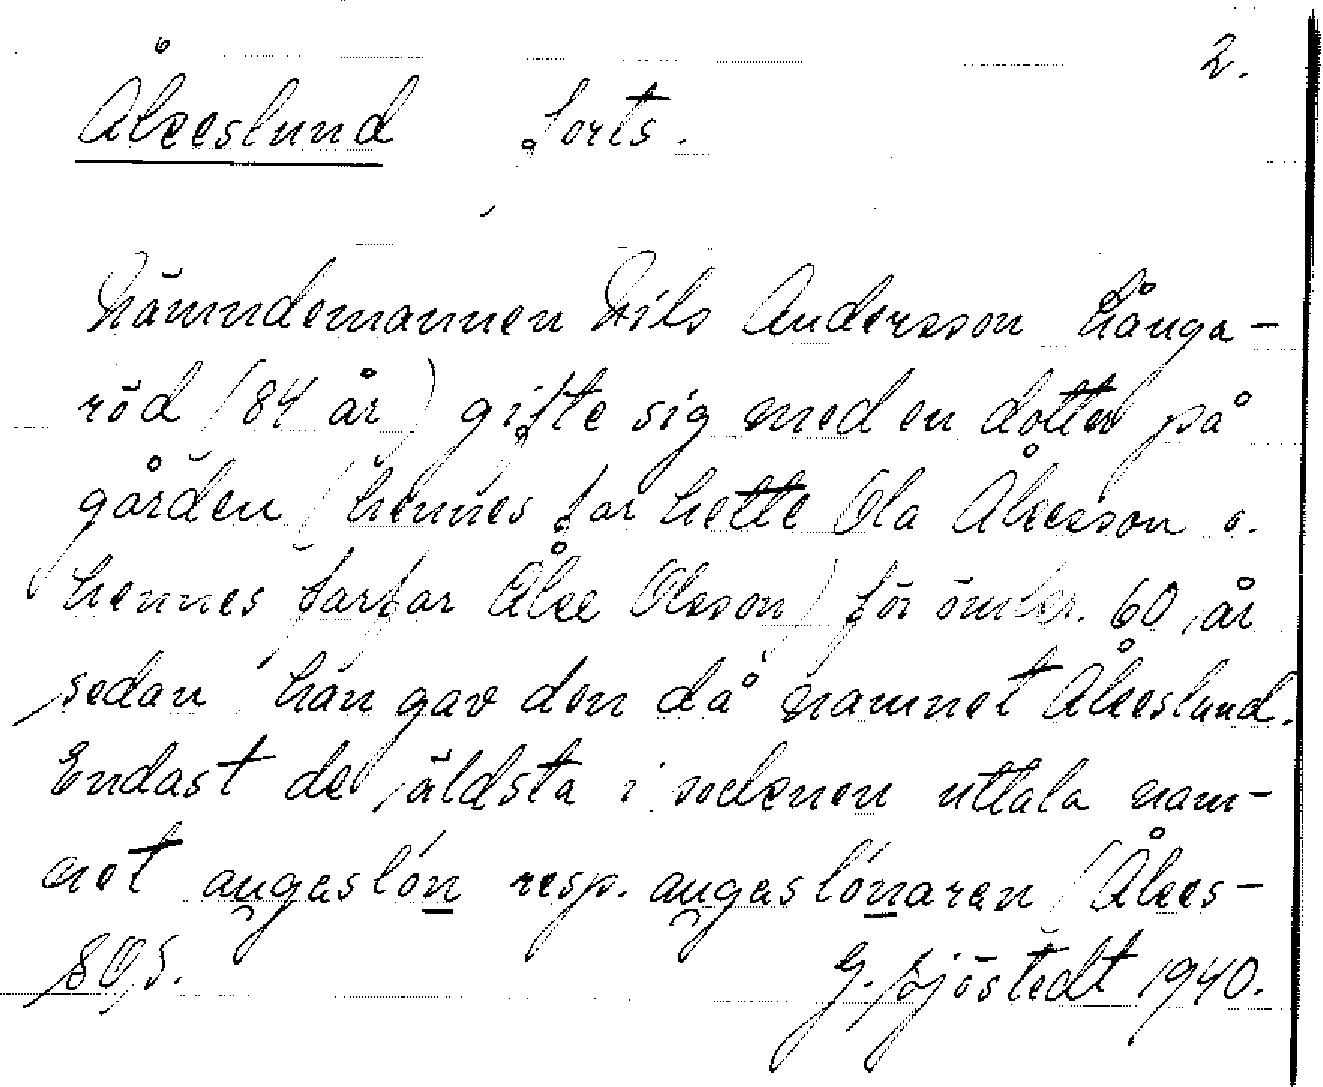 2.
Åkeslund forts.
Nämndemannen Nils Andersson Långa-
röd (84 år) gifte sig med en dotter på
gården (hennes far hette Ola Åkesson o.
hennes farfar Åke Olsson) för omkr. 60 år
sedan han gav den då namnet Åkeslund.
Endast de äldsta i socknen uttala nam-
net augaslón resp. augaslónaren (Åkes-
G. Sjöstedt 1940.